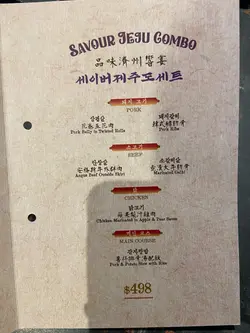 SAVOUR JEJU COMBO
品味濟州饗宴
세이버제주도세트
돼지 고기
PORK
삼겹살
花卷五花肉
Pork Belly in Twisted Rolls
돼지갈비
韓式豬肋骨
Pork Ribs
소고기
BEEF
안창살
安格斯牛外裙肉
Angus Beef Outside Skirt
소갈비살
Marinated Galbi
닭
CHICKEN
닭고기
蘋果梨汁雞肉
Chicken Marinated in Apple & Pear Sauce
메인 코스
MAIN COURSE
감자탕밥
薯仔排骨湯配飯
Pork & Potato Stew with Rice
$498